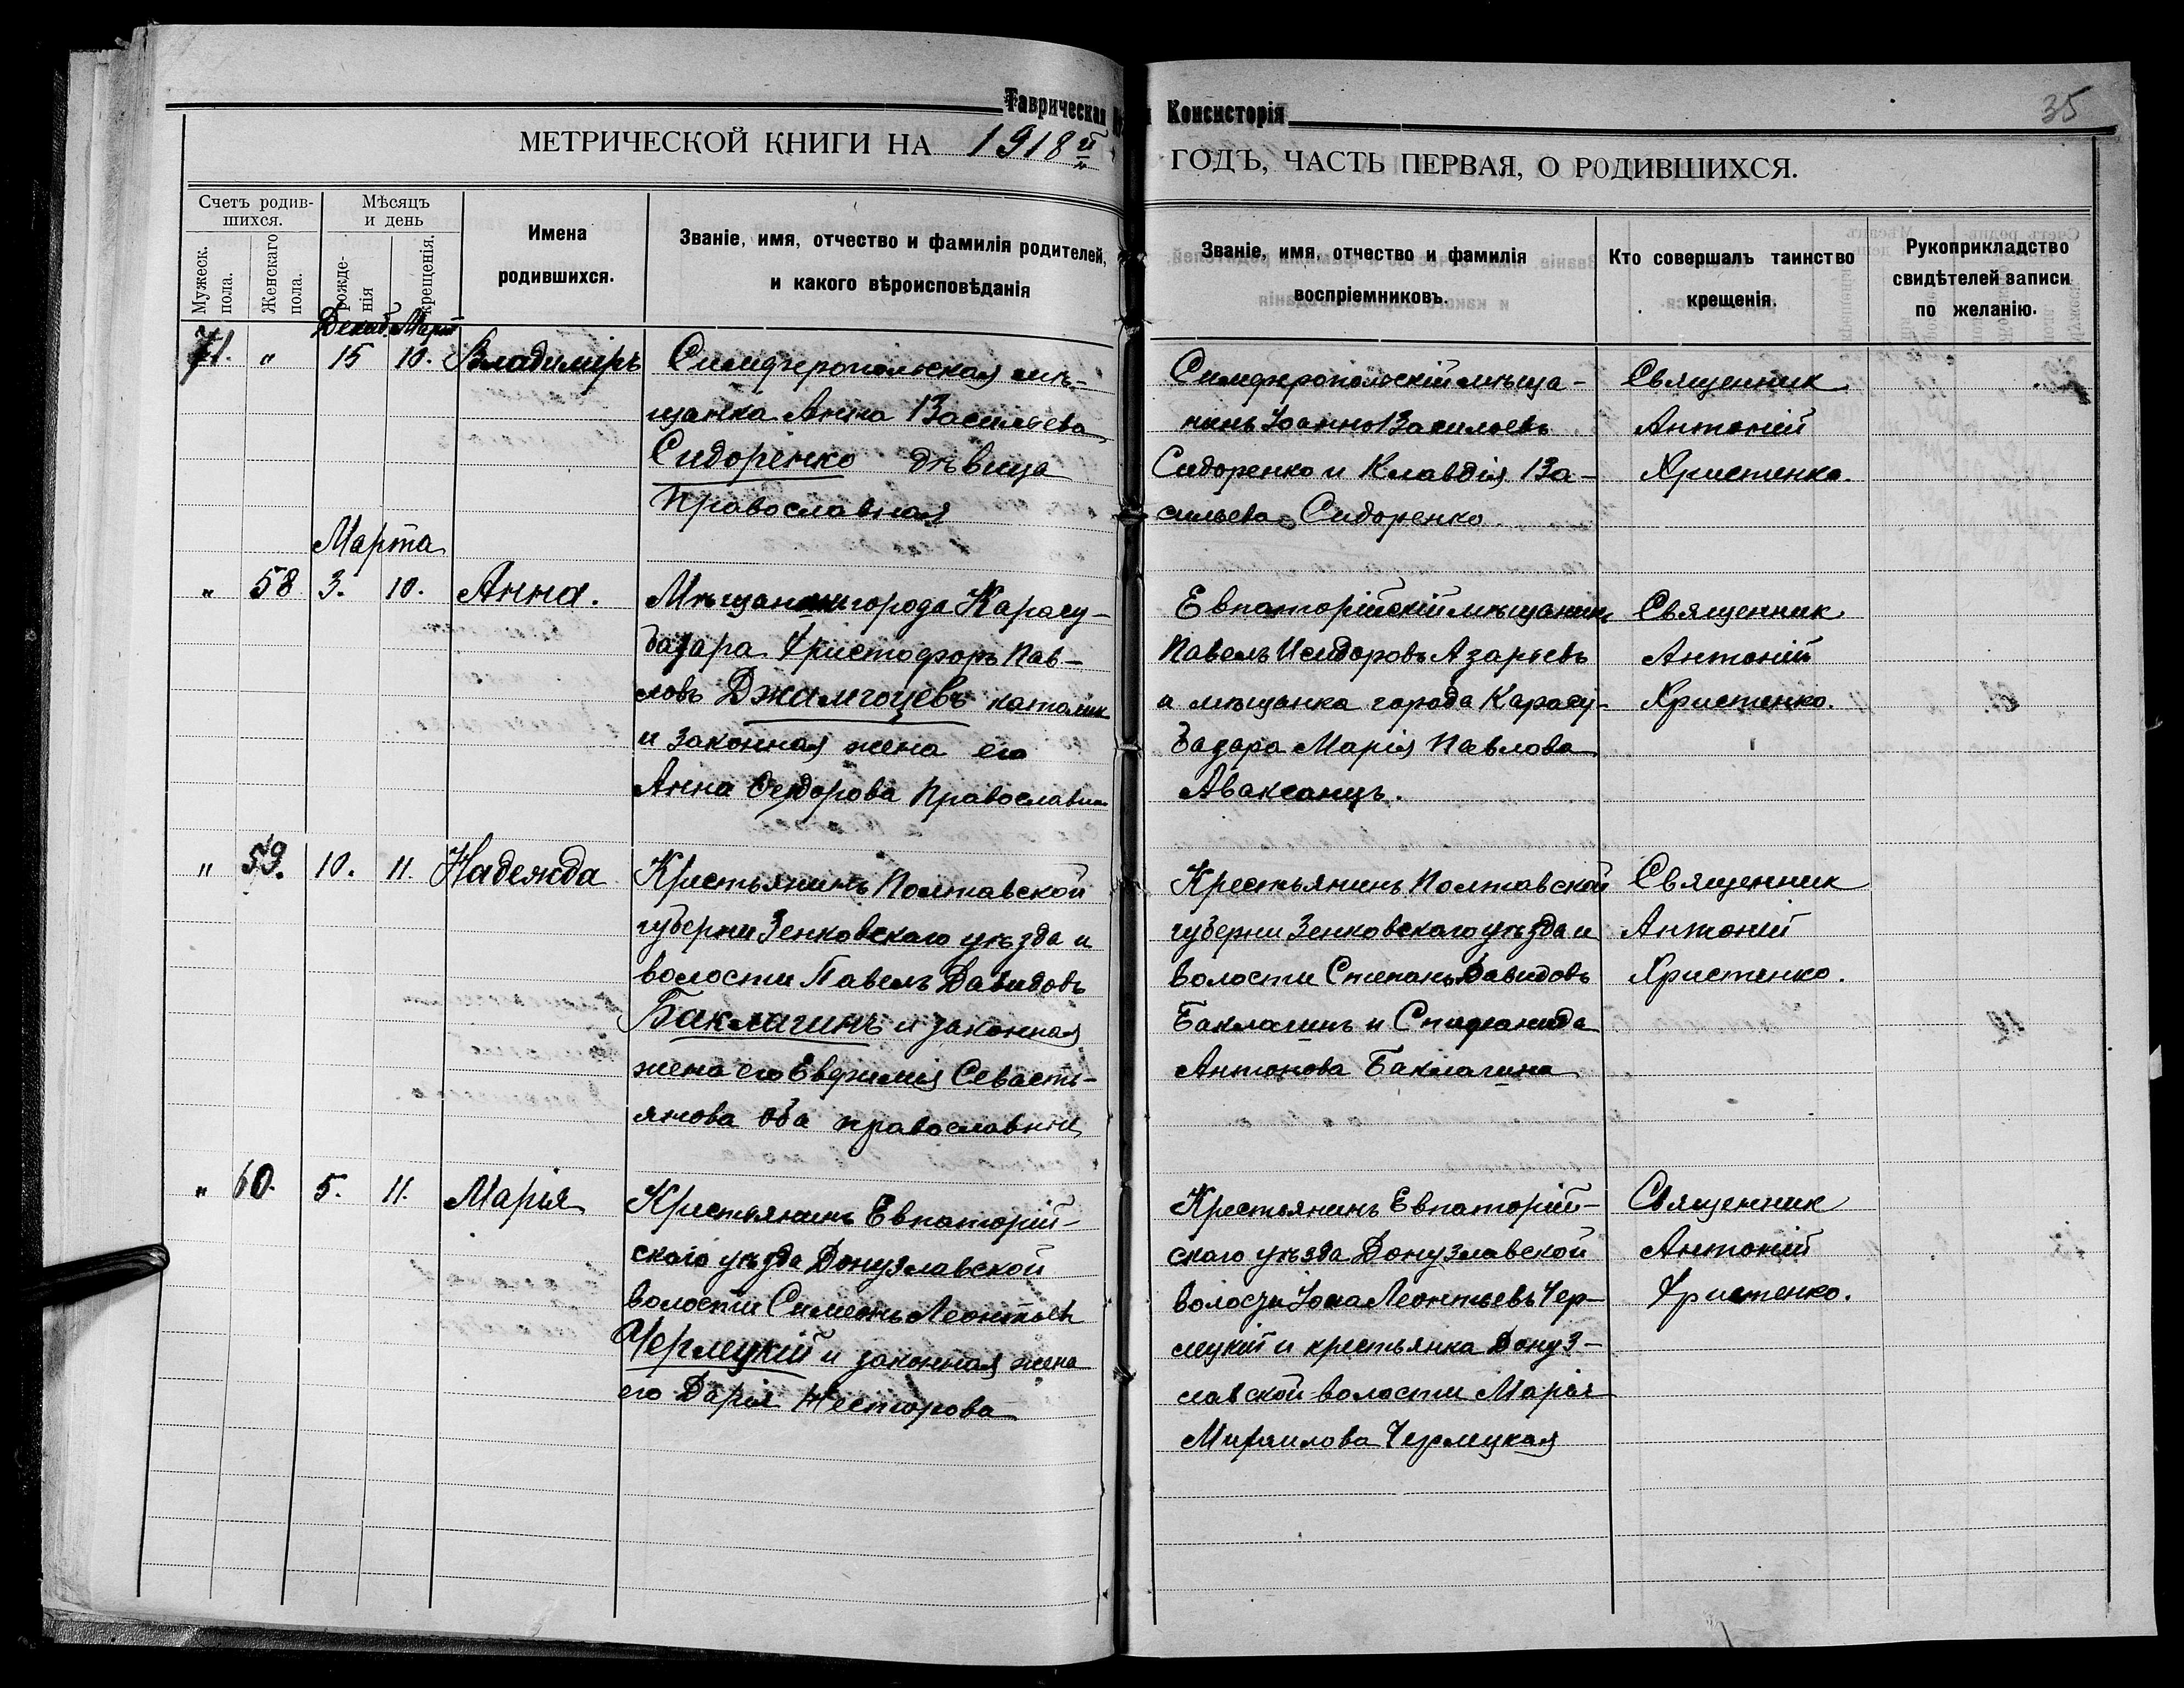 Таврическая Консисторія
35
МЕТРИЧЕСКОЙ КНИГИ НА 1918й ГОДЪ, ЧАСТЬ ПЕРВАЯ, О РОДИВШИХСЯ.
Счетъ родив-
шихся.
Мужеск.
пола.
Женскаго
пола.
Мѣсяцъ
и день
рожде-
нія
крещенія.
Имена
родившихся.
Званіе, имя, отчество и фамилія родителей,
и какого вѣроисповѣданія
Званіе, имя, отчество и фамилія
воспріемниковъ.
Кто совершалъ таинство
крещенія.
Рукоприкладство
свидѣтелей записи
по желанію.
Декаб. Март
71. " 15 10. Владиміръ
Симферопольская мѣ-
щанка Анна Васильева
Сидоренко дѣвица
Православная
Симферопольскій мѣща-
нинъ Іоаннъ Васильевъ
Сидоренко и Клавдія Ва-
сильева Сидоренко
Священник
Антоній
Христенко.
Марта
" 58 3. 10. Анна.
Мѣщанин города Карасу-
базара Христофоръ Пав-
ловъ Джамгоцевъ католик
и законная жена его
Анна Федорова Православн
Евпаторійскій мѣщанин
Павелъ Исидоровъ Азарьевъ
и мѣщанка города Карасу-
базара Марія Павлова
Аваксанцъ.
Священник
Антоній
Христенко.
" 59. 10. 11. Надежда
Крестьянинъ Полтавской
губерни Зенковскаго уѣзда и
волости Павелъ Давидовъ
Баклагинъ и законная
жена его Евфимія Севасть-
янова оба православны
Крестьянинъ Полтавской
губерни Зенковскаго уѣзда и
волости Степанъ Давидовъ
Баклагинъ и Стефанида
Антонова Баклагина
Священник
Антоній
Христенко.
" 60. 5. 11. Марія
Крестьянинъ Евпаторій-
скаго уѣзда Донузлавской
волости Симеонъ Леонтьевъ
Чермецкій и законная жена
его Дарія Несторова
Крестьянинъ Евпаторій-
скаго уѣзда Донузлавской
волости Іона Леонтьевъ Чер-
мецкій и крестьянка Дону з-
лавской волости Марія
Михаилова Чермецкая
Священник
Антоній
Христенко.